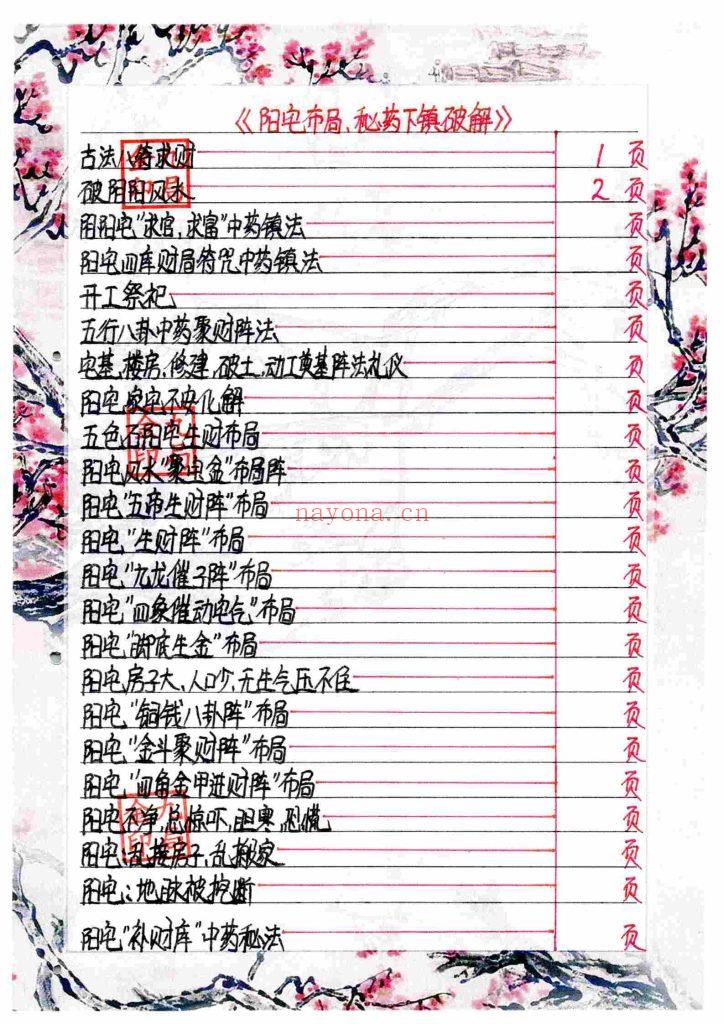 《阳宅布局、秘药下镇破解》
古法八符求财 1 页
破阴阳风水 2 页
阴阳宅“求官,求富”中药镇法 页
阳宅四库财局符咒中药镇法 页
开工祭祀 页
五行八卦中药聚财阵法 页
宅基,楼房,修建,破土,动工奠基阵法礼仪 页
阳宅家宅不安化解 页
五色石阳宅生财布局 页
阳宅风水“聚宝盆”布局阵 页
阳宅“五帝生财阵”布局 页
nayona.cn
阳宅“生财阵”布局 页
阳宅“九龙催子阵”布局 页
阳宅“四象催动宅气”布局 页
阳宅“脚底生金”布局 页
阳宅房子大,人口少,无生气压不住 页
阳宅“铜钱八卦阵”布局 页
阳宅“金斗聚财阵”布局 页
阳宅“四角金甲进财阵”布局 页
阳宅不净,总惊吓,胆寒,恐慌 页
阳宅:乱接房子,乱搬家 页
阳宅:地脉被挖断 页
阳宅“补财库”中药秘法 页